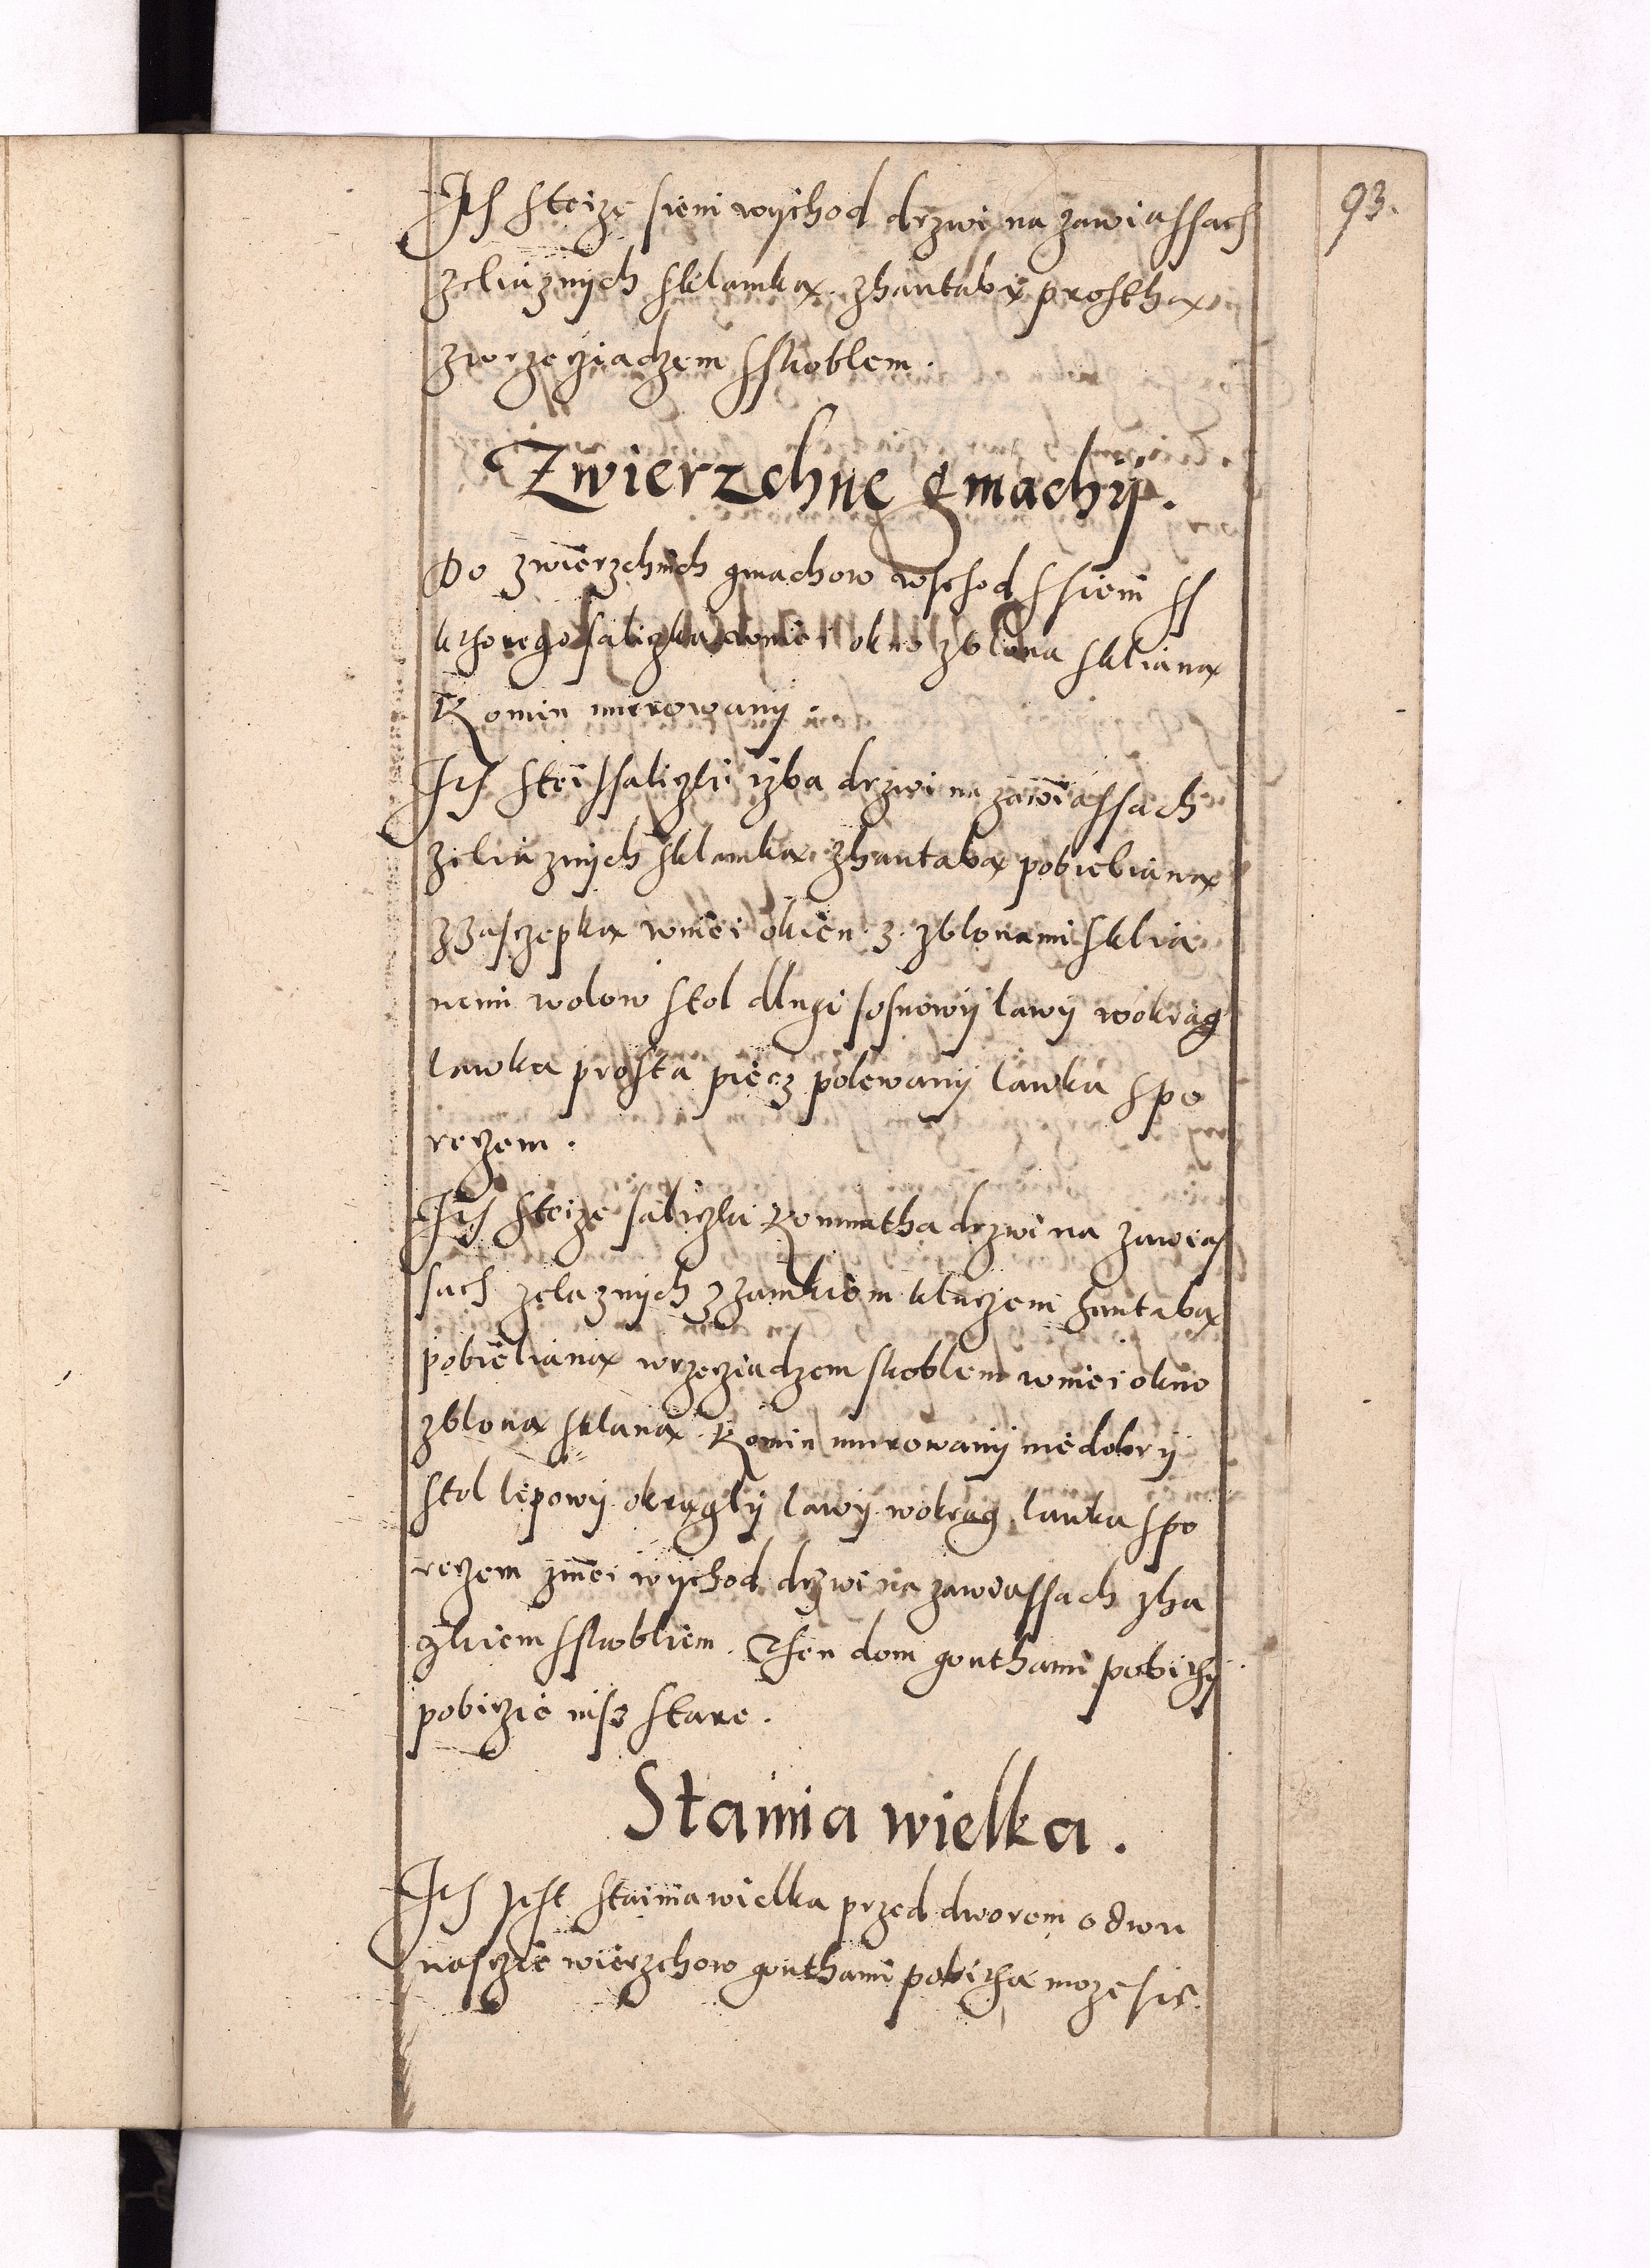 93.
Ità steize sieni wychod drzwi na zawiassach
zeliaznych sklamką zhantabą prosthą
zwrzecziadzem sskoblem.
Zwierzchne gmachy.
Do zwierzchnich gmachow wschod ssieni ss
kthorego saliczka wniei okno zblona skliana
Komin murowany.
Ità stei ssaliczki izba drzwi na zawiassach
zeliaznych sklamką zhantabą pobielianą
zzasczepką wniei okien 3 zblonami sklia
nemi wolow stol dlugi sosnowy lawy wokrąg
lawka prosta piecz polewany lawka spo
reczem.
Ità steize saliczki Komnatha drzwi na zawias
sach zelaznych zzamkiem kluczem hantabą
pobielianą wrzecziadzem skoblem wniei okno
zbloną sklaną Komin murowany niedobry
stol lepowy okrągly lawy wokrąg lawka spo
reczem zniei wychod drzwi na zawiassach zha
czkiem sskobliem. Then dom gonthami pobithy
pobiczie iusz stare.
Stainia wielka.
Ità jest stainia wielka przed dworem o dwu
nasczie wierzchow gonthami pobitha moze sie